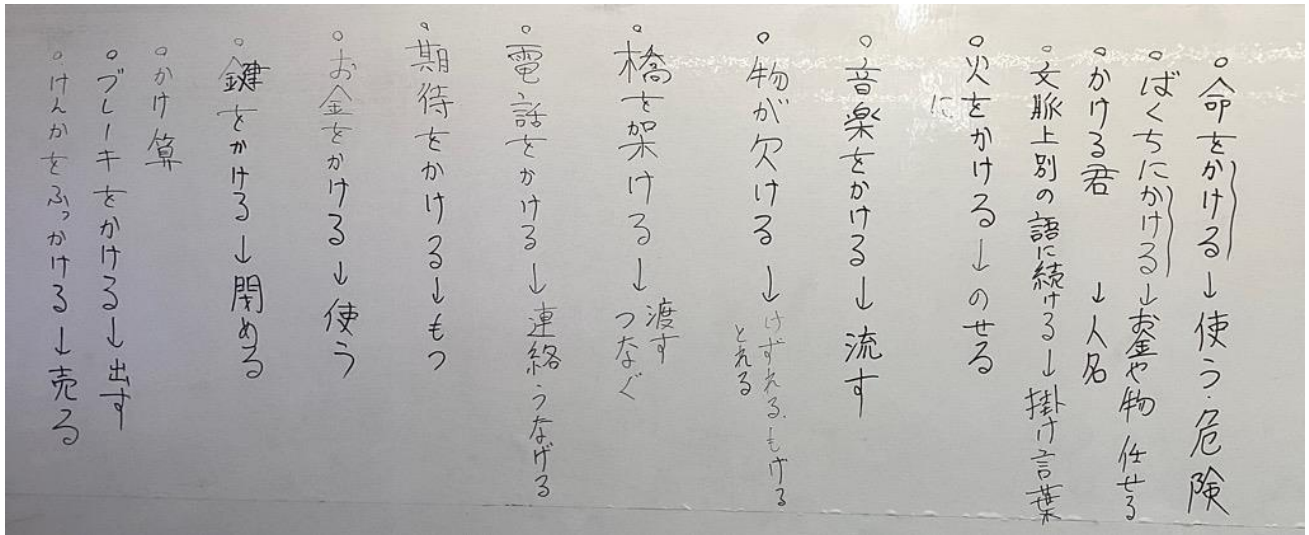 。命をかける→使う・危険
。ばくちにかける→お金や物 任せる
。かける君 →人名
。文脈上別の語に続ける→掛け言葉
。火をかける→のせる
に
。音楽をかける→流す
。物が欠ける→けずれる、もげる
とれる
。橋を架ける→渡す
つなぐ
。電話をかける→連絡 つなげる
。期待をかける→もつ
。お金をかける→使う
。鍵をかける→閉める
。かけ算
。ブレーキをかける→出す
。けんかをふっかける→売る